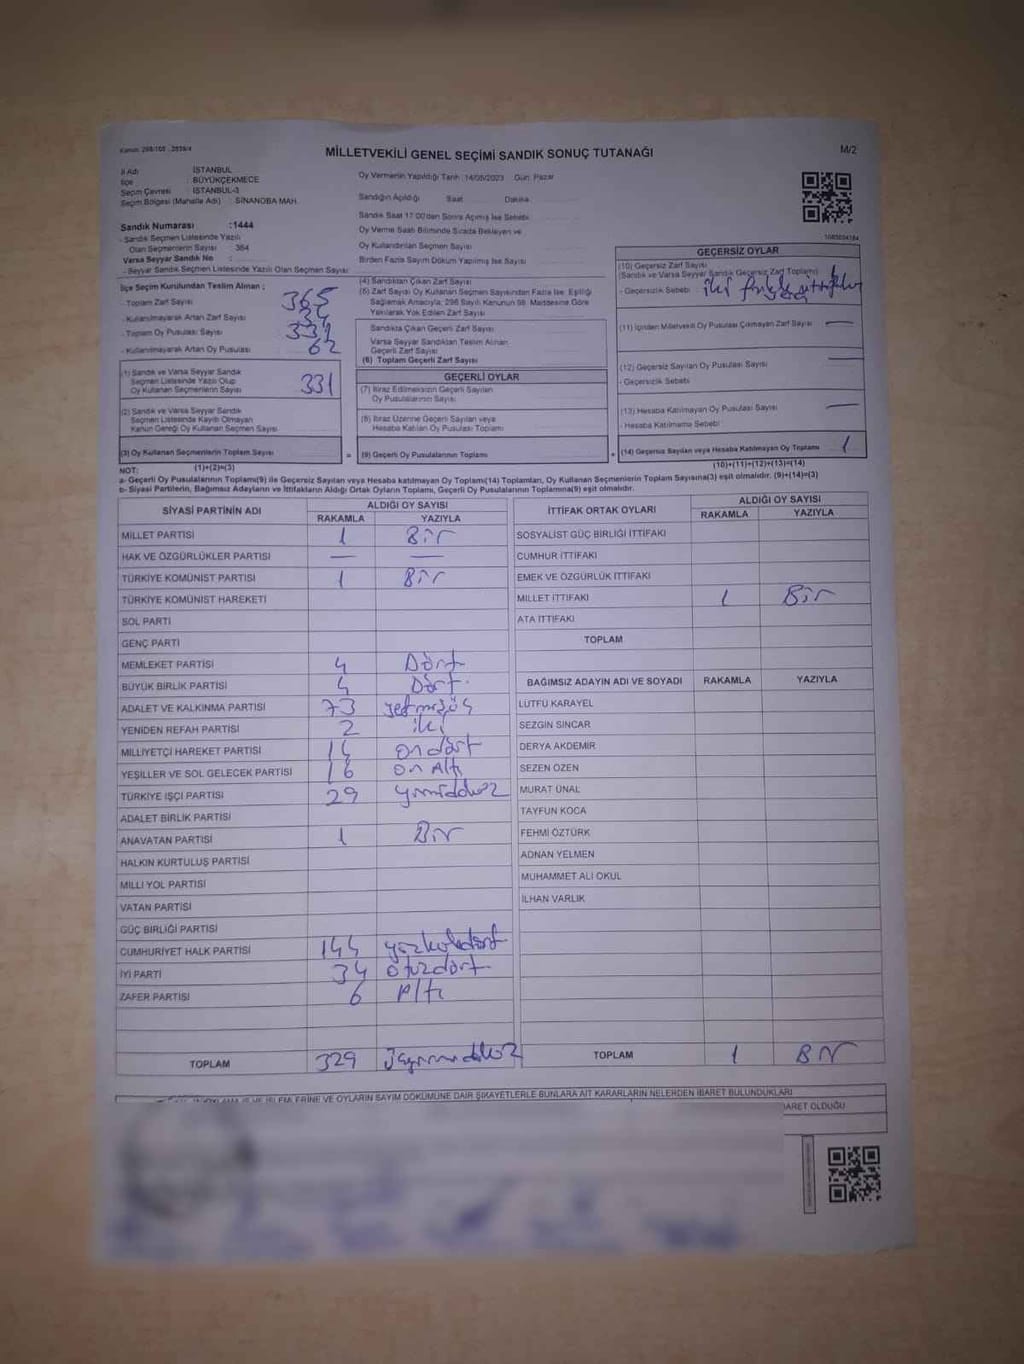 Kanun: 298/105 - 2839/4
MİLLETVEKİLİ GENEL SEÇİMİ SANDIK SONUÇ TUTANAĞI
M/2
İl Adı : İSTANBUL
İlçe : BÜYÜKÇEKMECE
Seçim Çevresi : İSTANBUL-3
Seçim Bölgesi (Mahalle Adı) : SİNANOBA MAH.
Sandık Numarası :1444
- Sandık Seçmen Listesinde Yazılı
Olan Seçmenlerin Sayısı : 364
Varsa Seyyar Sandık No :
- Seyyar Sandık Seçmen Listesinde Yazılı Olan Seçmen Sayısı
Oy Vermenin Yapıldığı Tarih :14/05/2023 Gün: Pazar
Sandığın Açıldığı Saat Dakika
Sandık Saat 17:00'den Sonra Açılmış İse Sebebi
Oy Verme Saati Bitiminde Sırada Bekleyen ve
Oy Kullandırılan Seçmen Sayısı
Birden Fazla Sayım Döküm Yapılmış İse Sayısı
İlçe Seçim Kurulundan Teslim Alınan :
- Toplam Zarf Sayısı 365
- Kullanılmayarak Artan Zarf Sayısı 34
- Toplam Oy Pusulası Sayısı
- Kullanılmayarak Artan Oy Pusulası 62
(1) Sandık ve Varsa Seyyar Sandık
Seçmen Listesinde Yazılı Olup
Oy Kullanan Seçmenlerin Sayısı 331
(2) Sandık ve Varsa Seyyar Sandık
Seçmen Listesinde Kayıtlı Olmayan
Kanun Gereği Oy Kullanan Seçmen Sayısı
(3) Oy Kullanan Seçmenlerin Toplam Sayısı
(4) Sandıktan Çıkan Zarf Sayısı
(5) Zarf Sayısı Oy Kullanan Seçmen Sayısından Fazla İse, Eşitliği
Sağlamak Amacıyla, 298 Sayılı Kanunun 98. Maddesine Göre
Yakılarak Yok Edilen Zarf Sayısı
Sandıkta Çıkan Geçerli Zarf Sayısı
Varsa Seyyar Sandıktan Teslim Alınan
Geçerli Zarf Sayısı
(6) Toplam Geçerli Zarf Sayısı
GEÇERLİ OYLAR
(7) İtiraz Edilmeksizin Geçerli Sayılan
Oy Pusulalarının Sayısı
(8) İtiraz Üzerine Geçerli Sayılan veya
Hesaba Katılan Oy Pusulası Toplamı
= (9) Geçerli Oy Pusulalarının Toplamı
GEÇERSİZ OYLAR
(10) Geçersiz Zarf Sayısı
(Sandık ve Varsa Seyyar Sandık Geçersiz Zarf Toplamı) 1
- Geçersizlik Sebebi : iki
(11) İçinden Milletvekili Oy Pusulası Çıkmayan Zarf Sayısı —
(12) Geçersiz Sayılan Oy Pusulası Sayısı —
- Geçersizlik Sebebi
(13) Hesaba Katılmayan Oy Pusulası Sayısı —
- Hesaba Katılmama Sebebi
+ (14) Geçersiz Sayılan veya Hesaba Katılmayan Oy Toplamı 1
NOT: (1)+(2)=(3) (10)+(11)+(12)+(13)=(14)
a- Geçerli Oy Pusulalarının Toplamı(9) ile Geçersiz Sayılan veya Hesaba katılmayan Oy Toplamı(14) Toplamları, Oy Kullanan Seçmenlerin Toplam Sayısına(3) eşit olmalıdır. (9)+(14)=(3)
b- Siyasi Partilerin, Bağımsız Adayların ve İttifakların Aldığı Ortak Oyların Toplamı, Geçerli Oy Pusulalarının Toplamına(9) eşit olmalıdır.
SİYASİ PARTİNİN ADI ALDIĞI OY SAYISI
RAKAMLA YAZIYLA
MİLLET PARTİSİ 1 Bir
HAK VE ÖZGÜRLÜKLER PARTİSİ — —
TÜRKİYE KOMÜNİST PARTİSİ 1 Bir
TÜRKİYE KOMÜNİST HAREKETİ
SOL PARTİ
GENÇ PARTİ
MEMLEKET PARTİSİ 4 Dört
BÜYÜK BİRLİK PARTİSİ 4 Dört
ADALET VE KALKINMA PARTİSİ 73 yetmişüç
YENİDEN REFAH PARTİSİ 2 iki
MİLLİYETÇİ HAREKET PARTİSİ 14 on dört
YEŞİLLER VE SOL GELECEK PARTİSİ 16 on Altı
TÜRKİYE İŞÇİ PARTİSİ 29 yirmidokuz
ADALET BİRLİK PARTİSİ
ANAVATAN PARTİSİ 1 Bir
HALKIN KURTULUŞ PARTİSİ
MİLLİ YOL PARTİSİ
VATAN PARTİSİ
GÜÇ BİRLİĞİ PARTİSİ
CUMHURİYET HALK PARTİSİ 144 yüzkırkdört
İYİ PARTİ 34 otuzdört
ZAFER PARTİSİ 6 Altı
TOPLAM 329
İTTİFAK ORTAK OYLARI ALDIĞI OY SAYISI
RAKAMLA YAZIYLA
SOSYALİST GÜÇ BİRLİĞİ İTTİFAKI
CUMHUR İTTİFAKI
EMEK VE ÖZGÜRLÜK İTTİFAKI
MİLLET İTTİFAKI 1 Bir
ATA İTTİFAKI
TOPLAM
BAĞIMSIZ ADAYIN ADI VE SOYADI RAKAMLA YAZIYLA
LÜTFÜ KARAYEL
SEZGİN SİNCAR
DERYA AKDEMİR
SEZEN ÖZEN
MURAT ÜNAL
TAYFUN KOCA
FEHMİ ÖZTÜRK
ADNAN YELMEN
MUHAMMET ALİ OKUL
İLHAN VARLIK
TOPLAM 1 Bir
VE OYLARIN SAYIM DÖKÜMÜNE DAİR ŞİKAYETLERLE BUNLARA AİT KARARLARIN NELERDEN İBARET BULUNDUKLARI
İBARET OLDUĞU